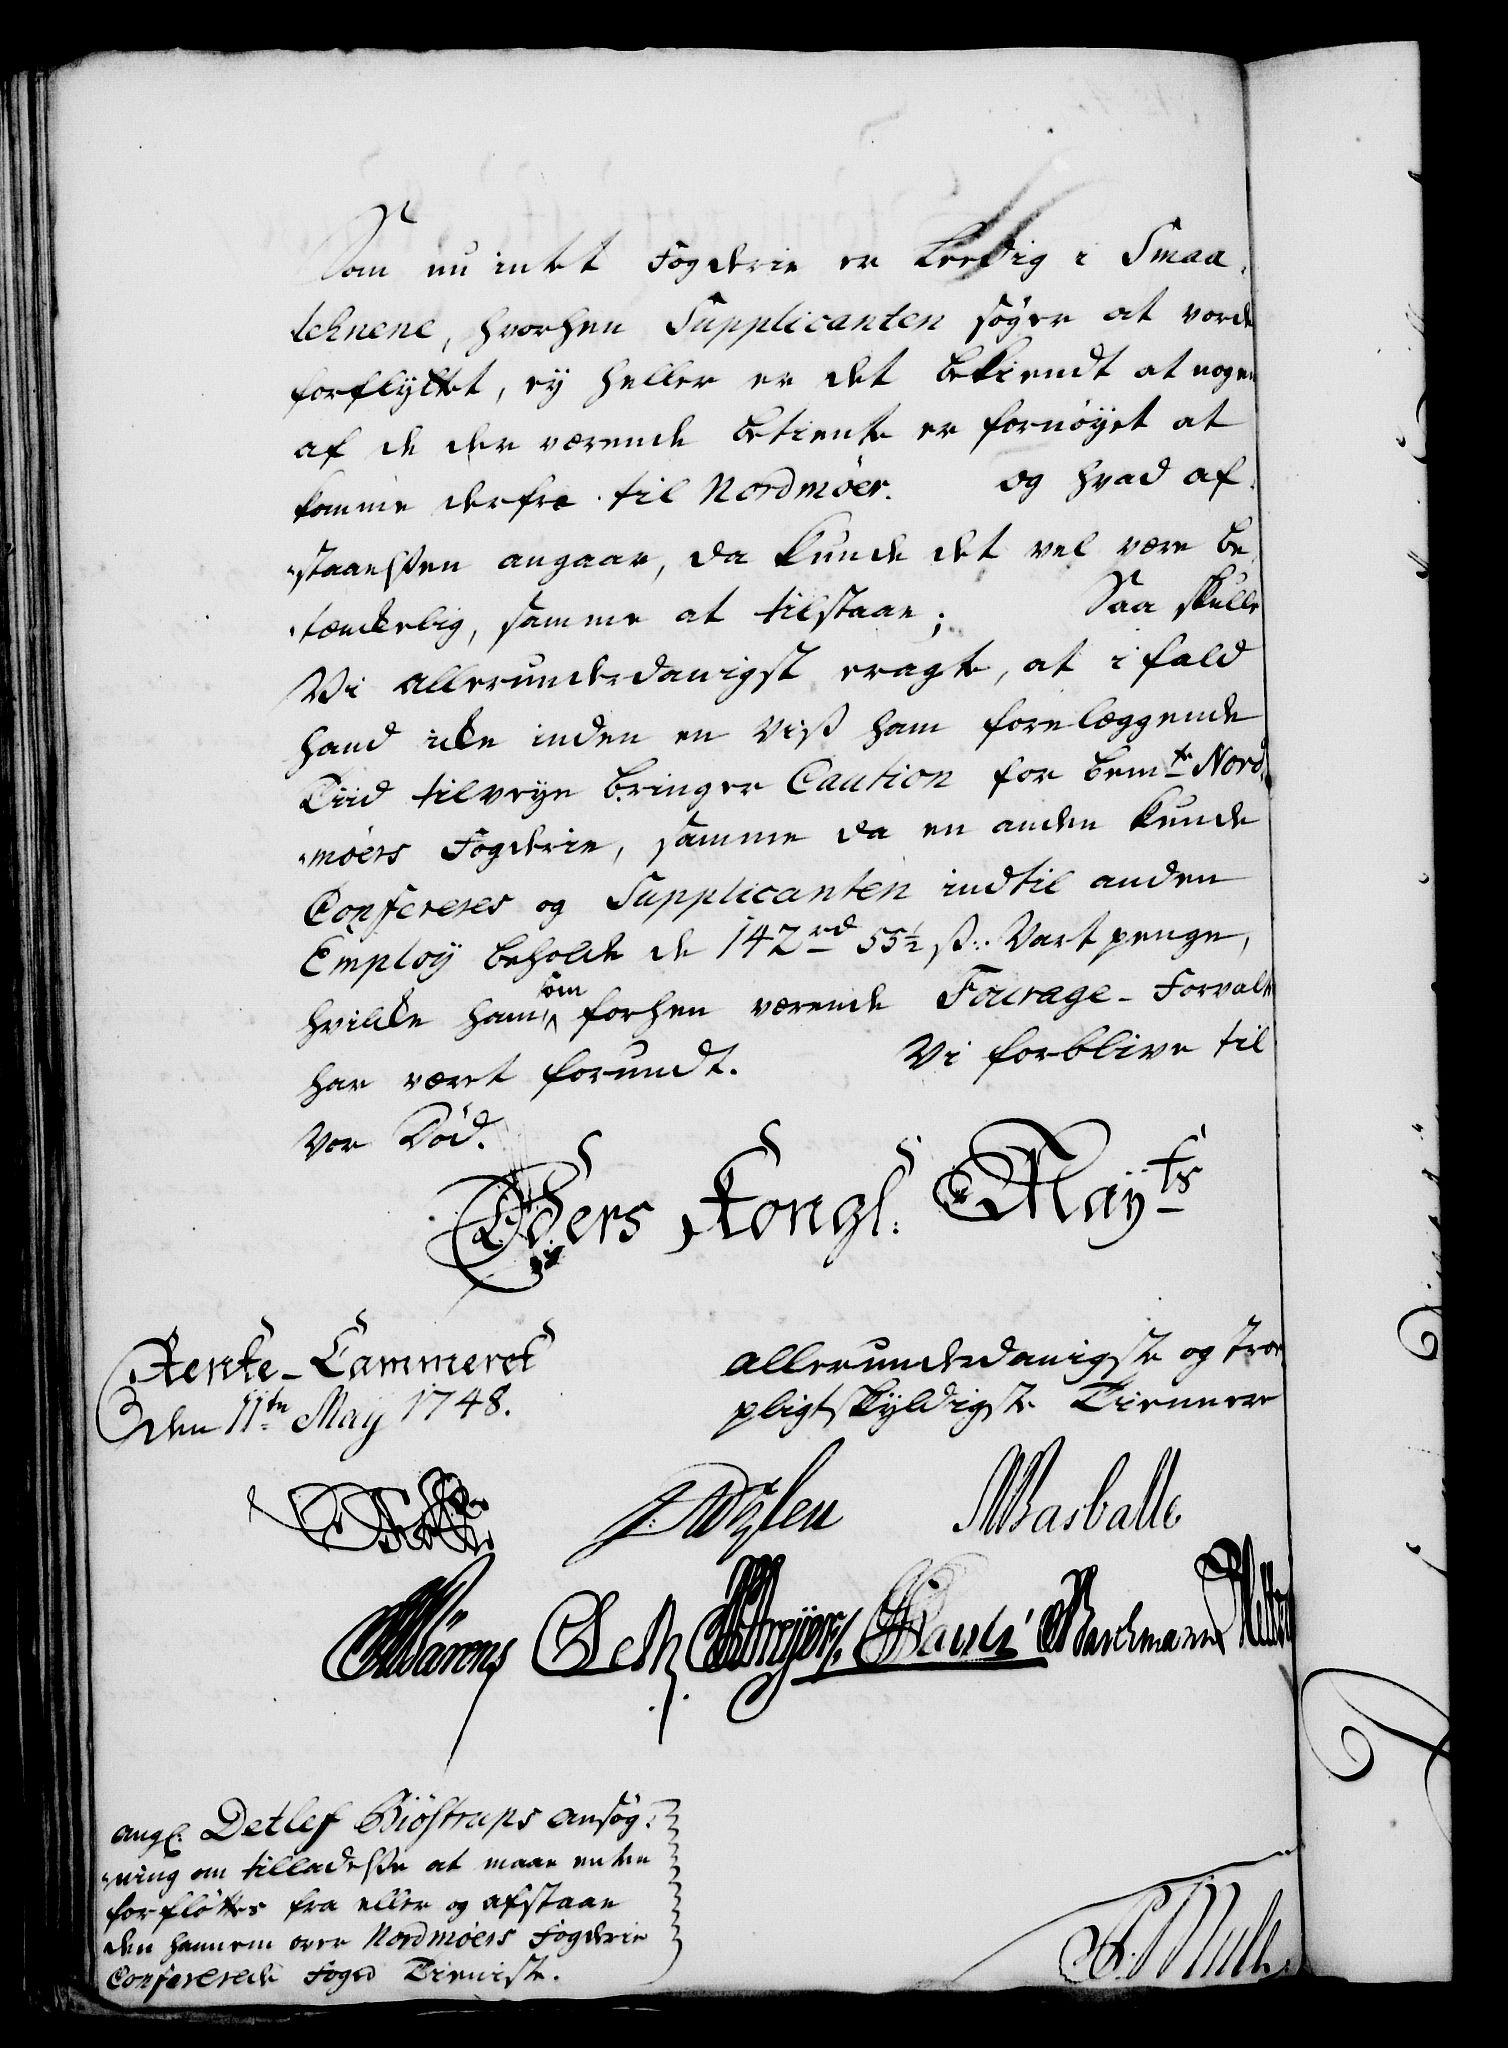 Som nu intet Fogderie er Leedig i Smaa,
lehnene, hvorhen Supplicanten søger at vorde
forflyttet, eÿ heller er det bekiendt at nogen
af de der værende betiente er fornøÿet at
komme derfra til Nordmöer. og hvad af,
staaelsen angaar, da kunde det vel være be,
tænkelig, samme at tilstaae; Saa skulle
Vi allerunderdanigst eragte, at ifald
hand icke inden en Viß ham forelæggende
Tiid tilveÿe bringer Caution for bemte Nord,
möers Fogderie, samme da en anden kunde
Confereres og Supplicanten indtil anden
Employ beholde de 142 rd 55½ ß: Vart penge,
hvilke ham som forhen værende Fourage-Forvalt
har været forundt. Vi forblive til
vor Død.
Eders Kongl: Mayts
Rente-Cammeret
den 11te May 1748.
allerunderdanigste og troe
pligtskÿldigste Tienere
Wartmann
ang: Detlef Biöstrups ansøg,
ning om tilladelse at maae enten
forfløttes fra eller og afstaae
den hannem over Nordmöers Fogderie
Confererede Foged Tieniste.